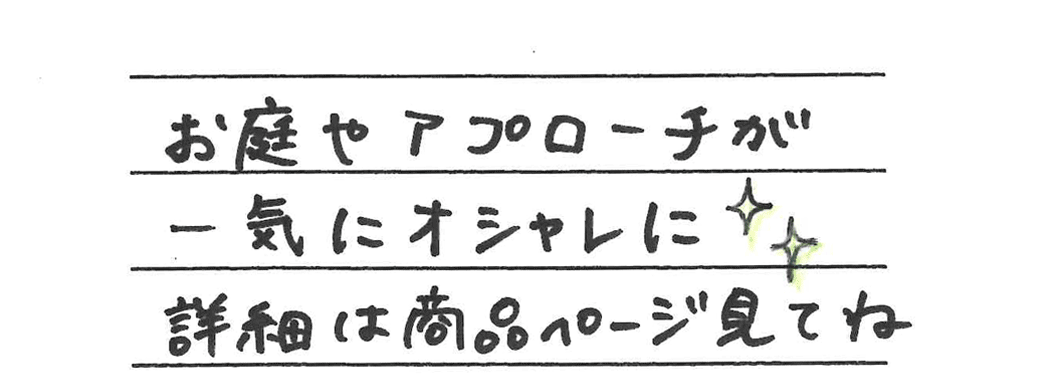 お庭やアプローチが
一気にオシャレに
詳細は商品ページ見てね